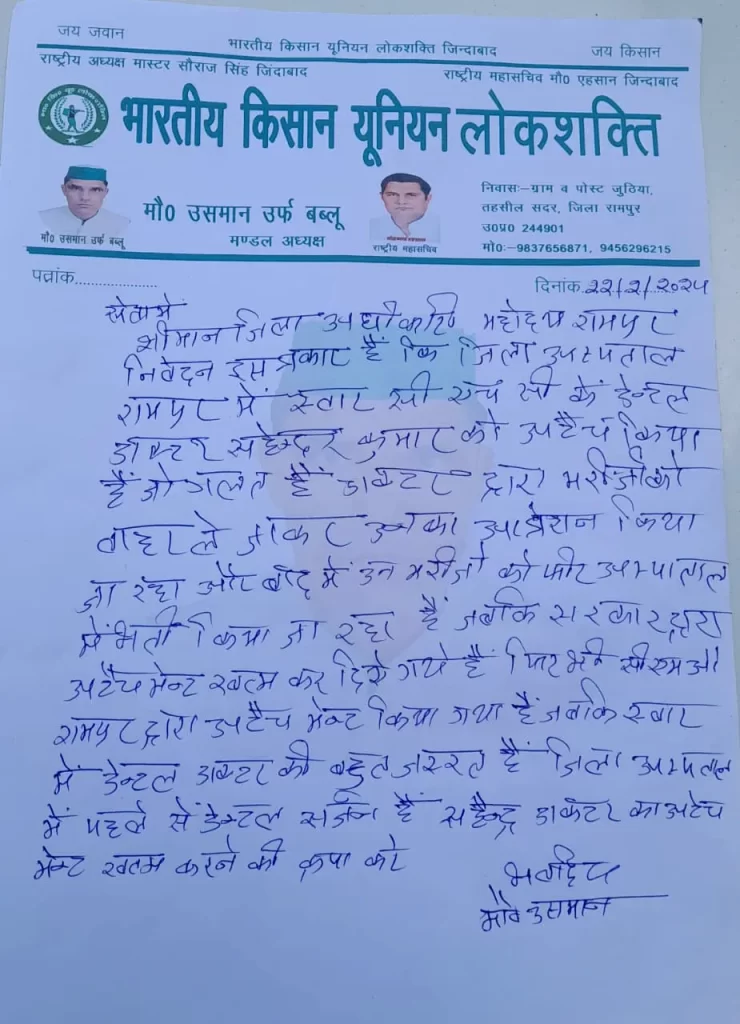 जय जवान
भारतीय किसान यूनियन लोकशक्ति जिन्दाबाद
जय किसान
राष्ट्रीय अध्यक्ष मास्टर सौराज सिंह जिंदाबाद
राष्ट्रीय महासचिव मौ0 एहसान जिन्दाबाद
भारतीय किसान यूनियन लोकशक्ति
मौ0 उसमान उर्फ बब्लू
मण्डल अध्यक्ष
मौ0 उसमान उर्फ बब्लू
राष्ट्रीय महासचिव
निवासः-ग्राम व पोस्ट जुठिया,
तहसील सदर, जिला रामपुर
उ0प्र0 244901
मो0:-9837656871, 9456296215
पत्रांक....................
दिनांक 22/2/2025
सेवामें
श्रीमान जिला अधीकारी महोदय रामपुर
निवेदन इस प्रकार हैं कि जिला अस्पताल
रामपुर में स्वार सी एच सी के डेन्टल
डाक्टर कुमार को अटैच किया
हैं जो गलत हैं डाक्टर द्वारा मरीजो को
बाहर ले जाकर उनका आप्रेशन किया
जा रहा और बाद में उन मरीजो को फिर अस्पाताल
में भर्ती किया जा रहा हैं जबकि सरकार द्वारा
अटैचमेन्ट खतम कर दिये गये हैं फिर भी सीएमओ
रामपुर द्वारा अटैच मेन्ट किया गया हैं जबकि स्वार
में डेन्टल डाक्टर की बहुत जरूरत हैं जिला अस्पताल
में पहले से डेन्टल सर्जन हैं डाक्टर का अटैच
मेन्ट खतम करने की कृपा करे
भवदिय
उसमान